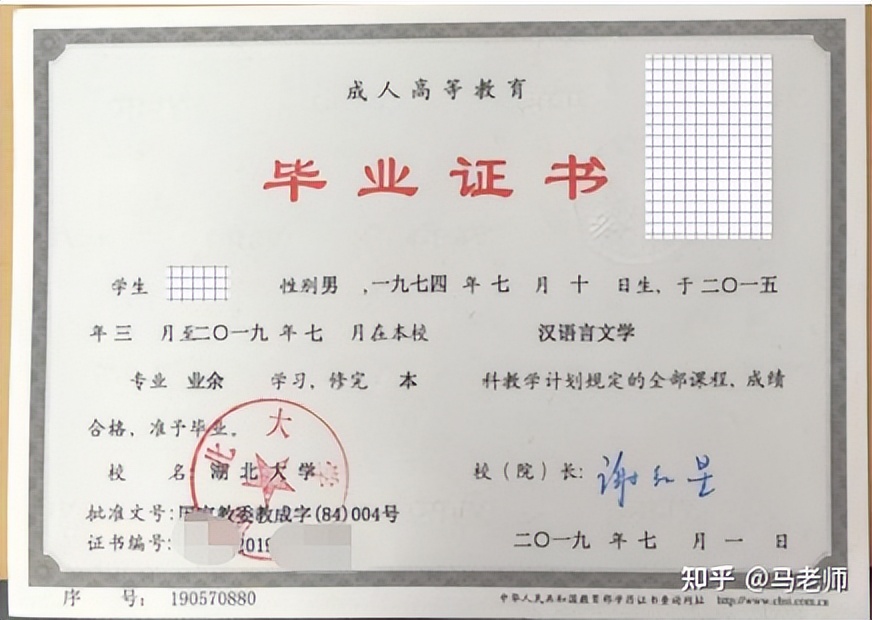 成人高等教育
毕业证书
学生 性别男 ,一九七四 年 七 月 十 日生、于二〇一五
年三 月至二〇一九 年七 月在本校 汉语言文学
专业 业余 学习、修完 本 科教学计划规定的全部课程、成绩
合格、准予毕业。
校 名: 湖北大学 校(院)长: 谢红星
批准文号:国家教委教成字(84)004号
证书编号: 2019 二〇一九 年七 月 一 日
序 号: 190570880 中华人民共和国教育部学历证书查询网址 http://www.chsi.com.cn
知乎 @马老师